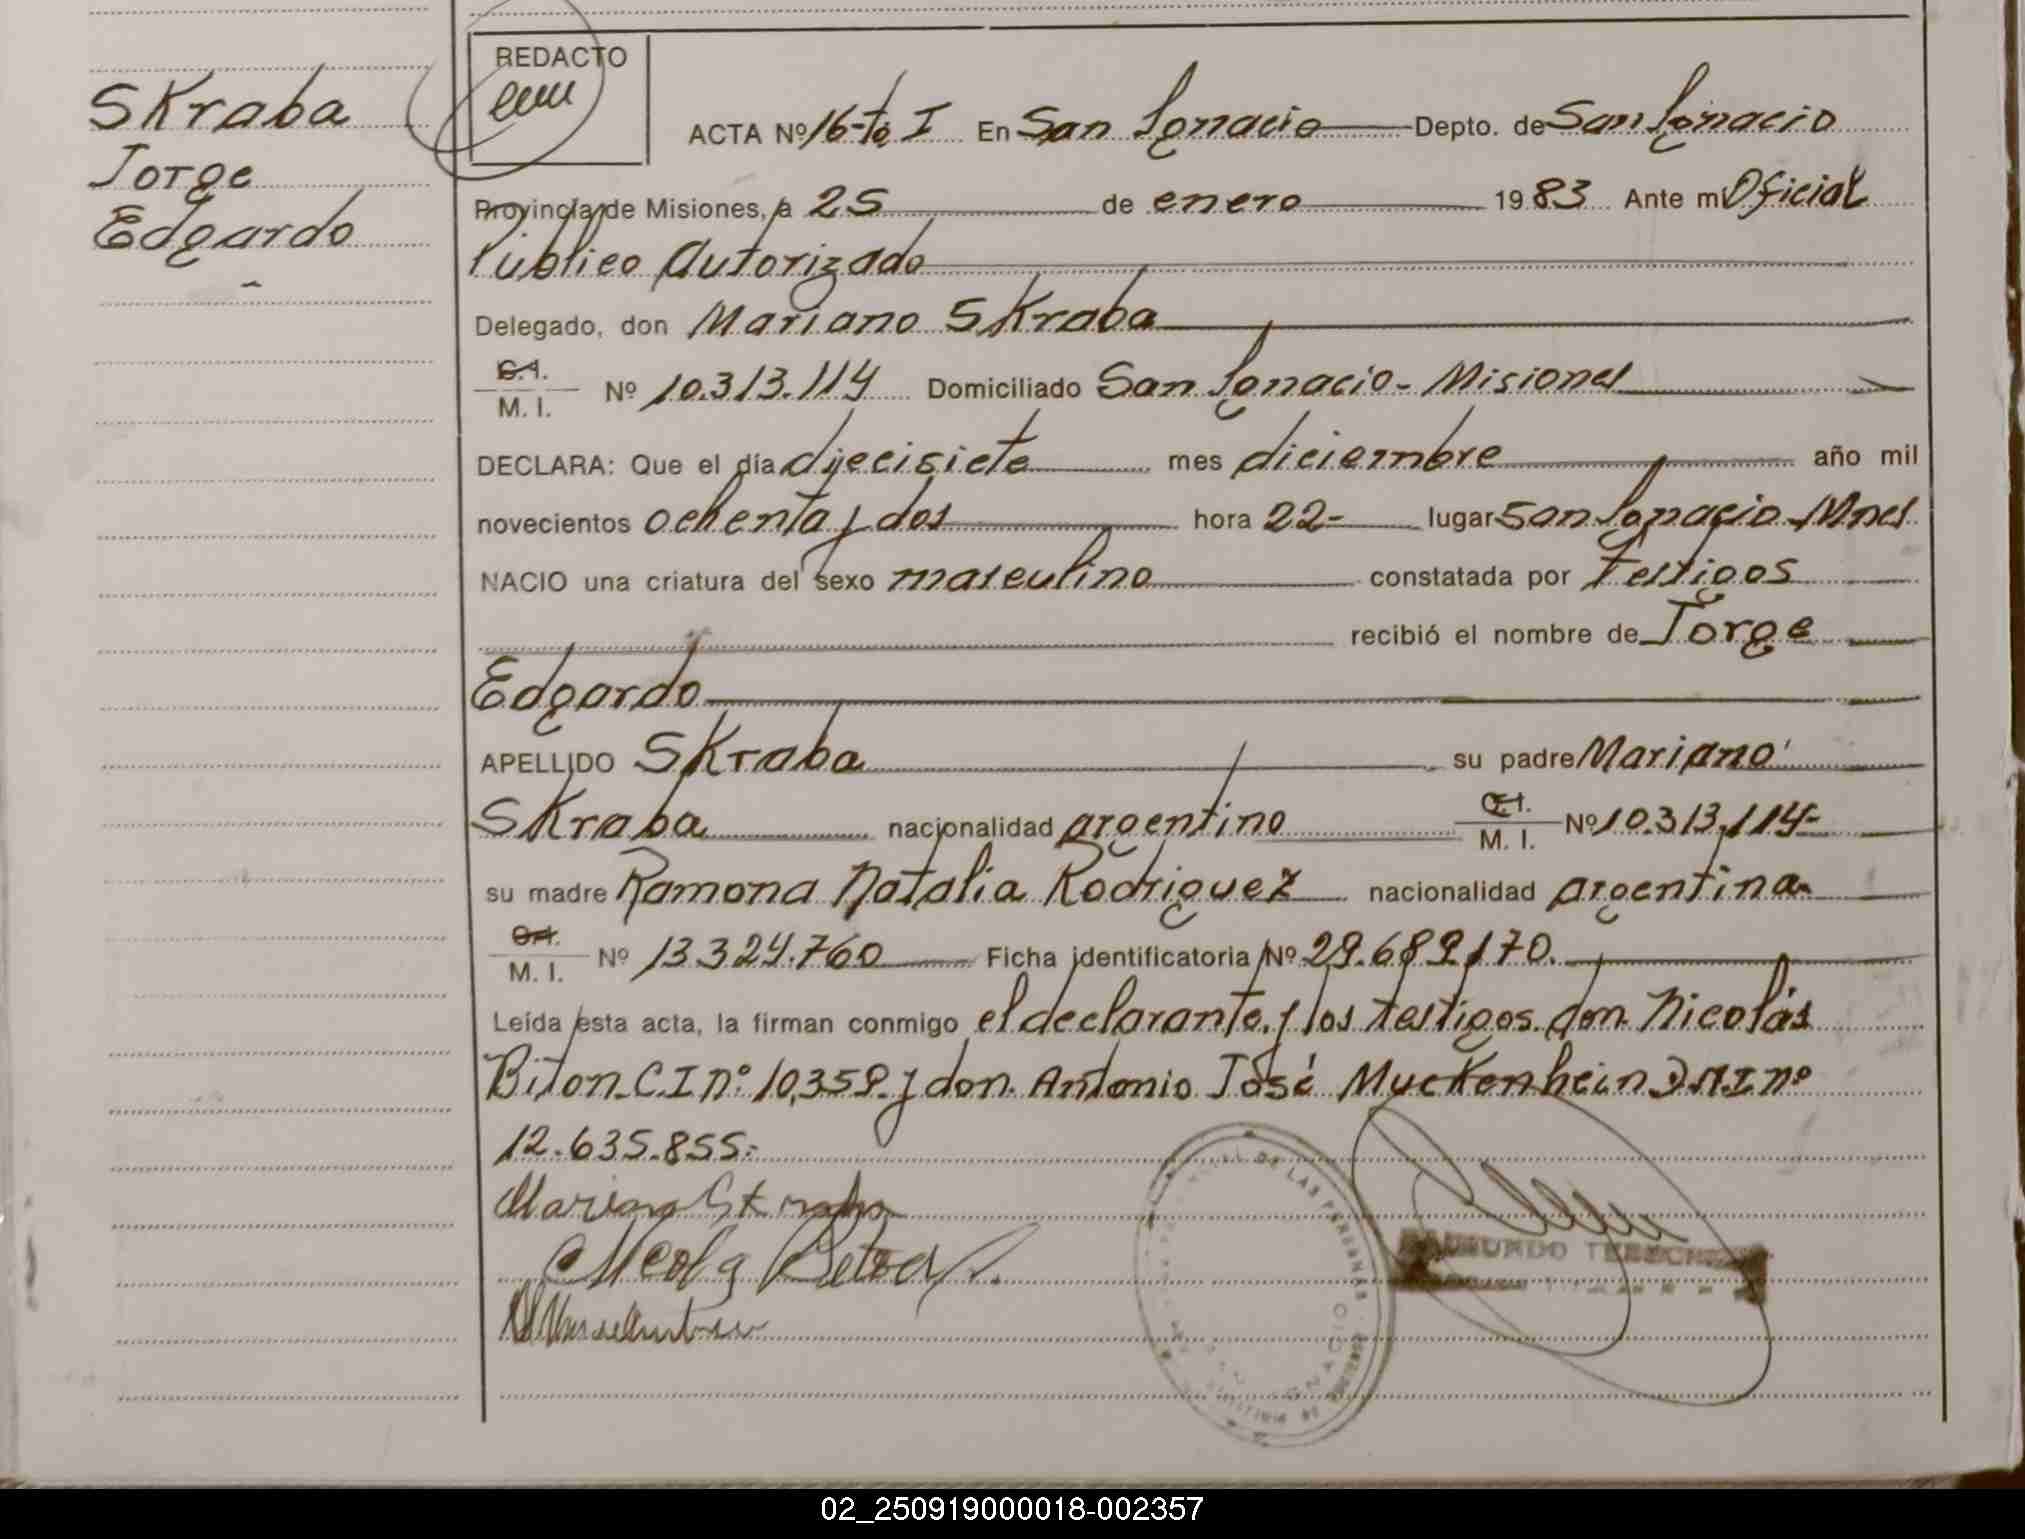 SKraba
Jorge
Edgardo
REDACTO
ACTA Nº 16-to I En San Ignacio Depto. de San Ignacio
Provincia de Misiones, a 25 de enero 1983 Ante mi Oficial
Público Autorizado
Delegado, don Mariano SKraba
C.I.
M. I. Nº 10.313.114 Domiciliado San Ignacio - Misiones
DECLARA: Que el día diecisiete mes diciembre año mil
novecientos ochenta y dos hora 22- lugar San Ignacio Mnes
NACIO una criatura del sexo masculino constatada por testigos
recibió el nombre de Jorge
Edgardo
APELLIDO SKraba su padre Mariano
SKraba nacionalidad argentino C.I. M. I. Nº 10.313.114-
su madre Ramona Natalia Rodriguez nacionalidad argentina
C.I.
M. I. Nº 13.324.760 Ficha identificatoria Nº 29.689.170.
Leída esta acta, la firman conmigo el declarante y los testigos don Nicolás
Biton C.I nº 10,359 y don Antonio José Muckenhein D.N.I nº
12.635.855.-
Mariano Skraba
DE LAS PERSONAS
SAN IGNACIO
RAIMUNDO
02_250919000018-002357